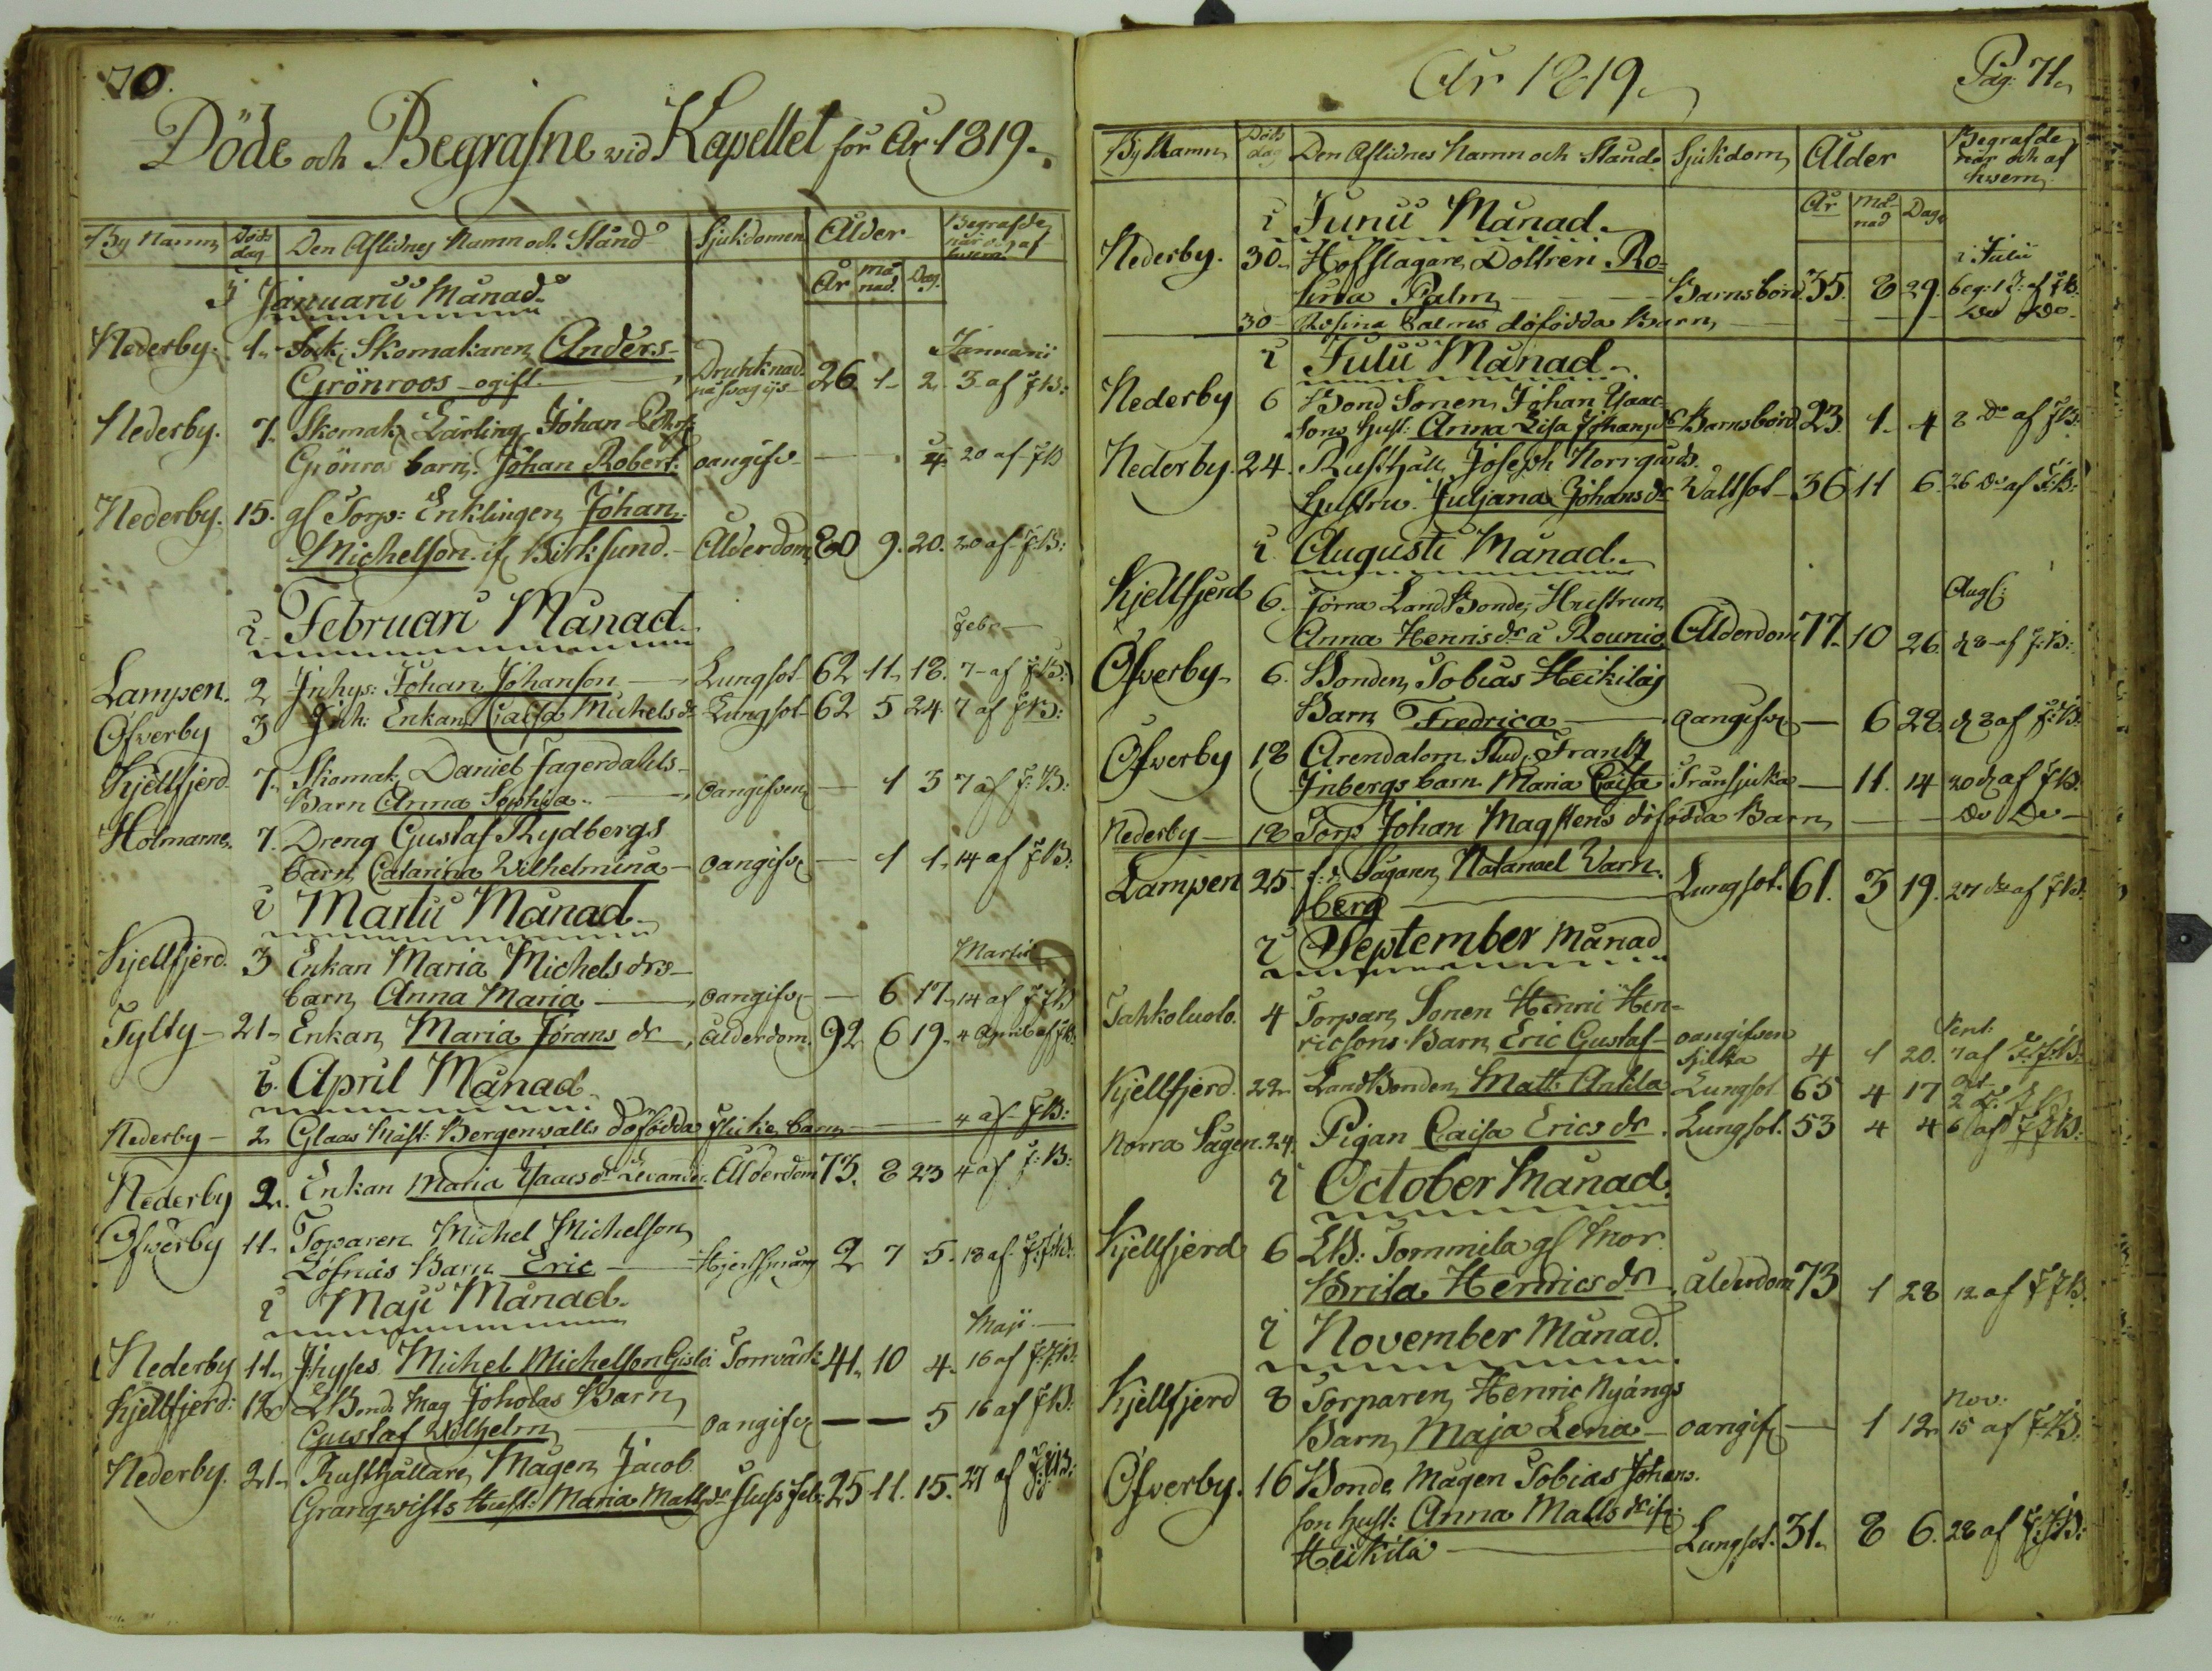 70.
Döde och Begrafne wid Kapellet för År 1819.
By Namn Döds dag Den Aflidnes Namn och Stånd Sjukdomen Ålder Begrafde när och af hwem
År Månad Dag.
I Januarii Månad
Nederby. 1. Sock. Skomakaren Anders Januarii
Grönroos ogift 26 1 2. 3 af JB:
Nederby. 7. Skomak. Lärling Johan
Grönros barn. Johan Robert. oangifv 4. 20 af JB
Nederby. 15. gl Torp: Enklingen Johan
Michelson if Birksund. Ålderdom 80 9. 20. 20 af JB:
i Februari Månad Febr
Lampen. 2 Inhys: Johan Johanson Lungsot 62 11. 18. 7 af JB:
Öfverby 3 Inh: Enkan Caisa Mickels dr Lungsot 62 5 24. 7 af JB:
Kjellfjerd 7. Skomak. Daniel Fagerdahls
Barn Anna Sophia oangifven 1 3 7 af JB:
Holmarne. 7. Dreng Gustaf Rydbergs
barn Catarina Wilhelmina oangifv 1 1. 14 af JB:
i Martii Månad
Kjellfjerd. 3 Enkan Maria Michels drs Martii
barn Anna Maria oangifv 6 17. 14 af JB
Tylty 21. Enkan Maria Jörans dr ålderdom. 92 6 19. 4 April af JB.
i April Månad
Nederby 2. Glaas Mäst: Bergenwalls döfödda flicke barn 4 af JB:
Nederby 2. Enkan Maria Isaacs dr Levander Ålderdom 73. 8 23 4 af JB:
Öfwerby 11. Toparen Michel Michelson
Löfnäs Barn Eric Hjertsprång 2 7 5. 18 af JB:
i Maji Månad
Maji
Nederby 11. Ihyses Michel Michelson Gislä Torrvärk 41. 10 4. 16 af JB:
Kjellfjerd: 12 LBond. Mag Joholas Barn
Gustaf Wilhelm oangifv 5 16 af JB:
Nederby. 21. Rusthållare Mågen Jacob
Granqwists Hust: Maria Matts dr 25 11. 15. 27 af JB:
År 1819.
Pag: 71.
By Namn Döds dag Den Aflidnes Namn och Stånd Sjukdom Ålder Begrafde när och af hwem
År Månad Dag.
i Junii Månad
Nederby. 30. Hofslagare Dottren Ro= i Julii
sina Palm Barnsbörd 35. 8 29. beg: 18 af JB.
30 Rosina Palms döfödda Barn do do
i Julii Månad
Nederby 6 Bond Sonen Johan Isaac
sons Hust: Anna Lisa Johans dr Barnsbörd 23. 1. 4 8 do af JB:
Nederby. 24. Rusthåll. Joseph Norrgårds
Hustru Juljana Johans dr Wattsot 36 11 6. 26 do af JB:
i Augusti Månad
Kjellfjerd 6. förra LandBonde Hustrun Aug:
Anna Henrics dr å Rounio Ålderdom 77. 10 26. d 8 af JB:
Öfwerby 6. Bonden Tobias Heikiläs
Barn Fredrica oangifv 6 28. d 8 af JB.
Öfwerby 18 Arendatorn Stud. Frantz
Inbergs barn Maria Caisa Trånsjuka 11. 14 20 d af JB.
Nederby 18 Torp Johan Magstens döfödda Barn do do
Lampen 25. f.d. Sågaren Natanael Varn
berg Lungsot. 61. 3 19. 27 do af JB.
i September Månad
Tahkoluolo. 4 Torpare Sonen Henric Hen=
ricsons Barn Eric Gustaf oangifven Sept:
sjukka 4 1 20. 7 af JB:
Kjellfjerd. 22. LandBonden Matt: Antila Lungsot 65 4 17
Norra Sågen. 24. Pigan Caisa Erics dr. Lungsot. 53 4 4 6 af JB:
i October Månad
Kjellfjerd 6 LB: Tommila gl Mor
Brita Henrics dr ålderdom 73 1 28 12 af JB.
i November Månad.
Kjellfjerd 8 Torparen Henric Nyängs Nov:
Barn Maja Lena oangif 1 12. 15 af JB.
Öfverby. 16 Bonde Mågen Tobias Johans
son hust: Anna Matts dr if
Heikilä Lungsot. 31. 8 6. 28 af JB: